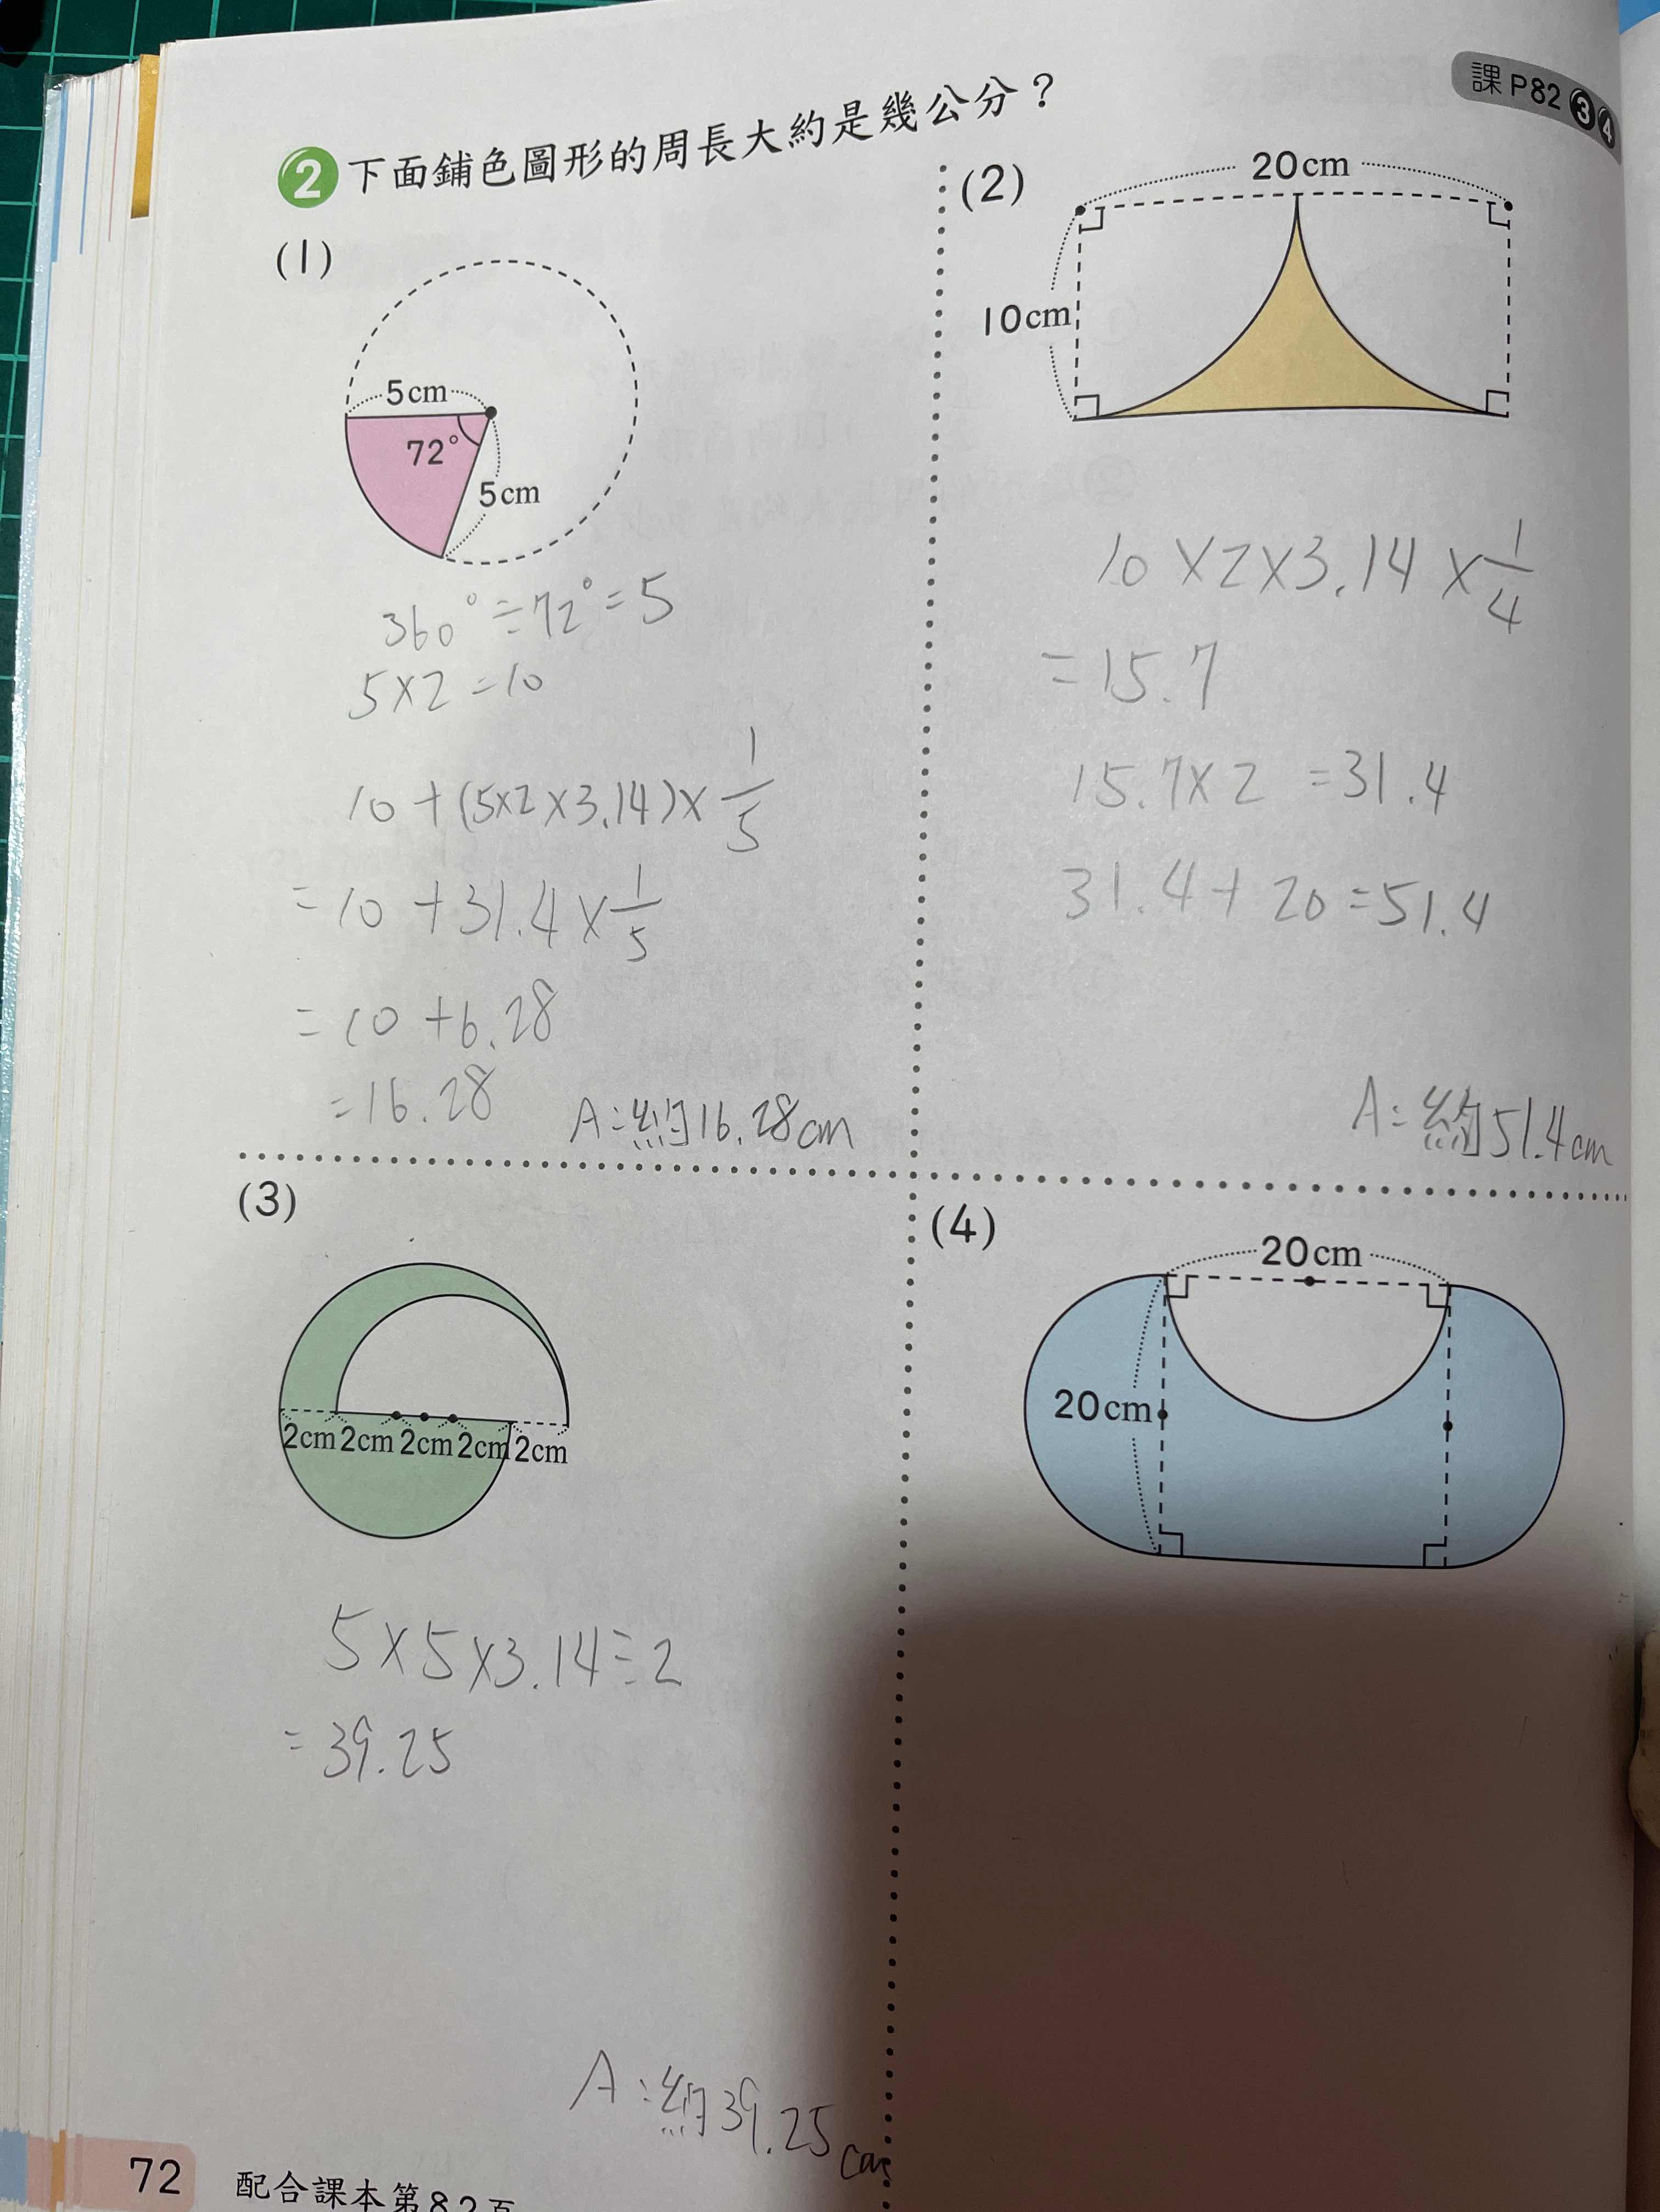 課 P82 ❸ ❹
2 下面鋪色圖形的周長大約是幾公分？
(1)
5cm
72°
5cm
360°÷72°=5
5×2=10
10+(5×2×3.14)×1/5
=10+31.4×1/5
=10+6.28
=16.28
A:約16.28cm
(2)
20cm
10cm
10×2×3.14×1/4
=15.7
15.7×2=31.4
31.4+20=51.4
A:約51.4cm
(3)
2cm 2cm 2cm 2cm 2cm
5×5×3.14÷2
=39.25
A:約39.25cm
(4)
20cm
20cm
72 配合課本第82頁